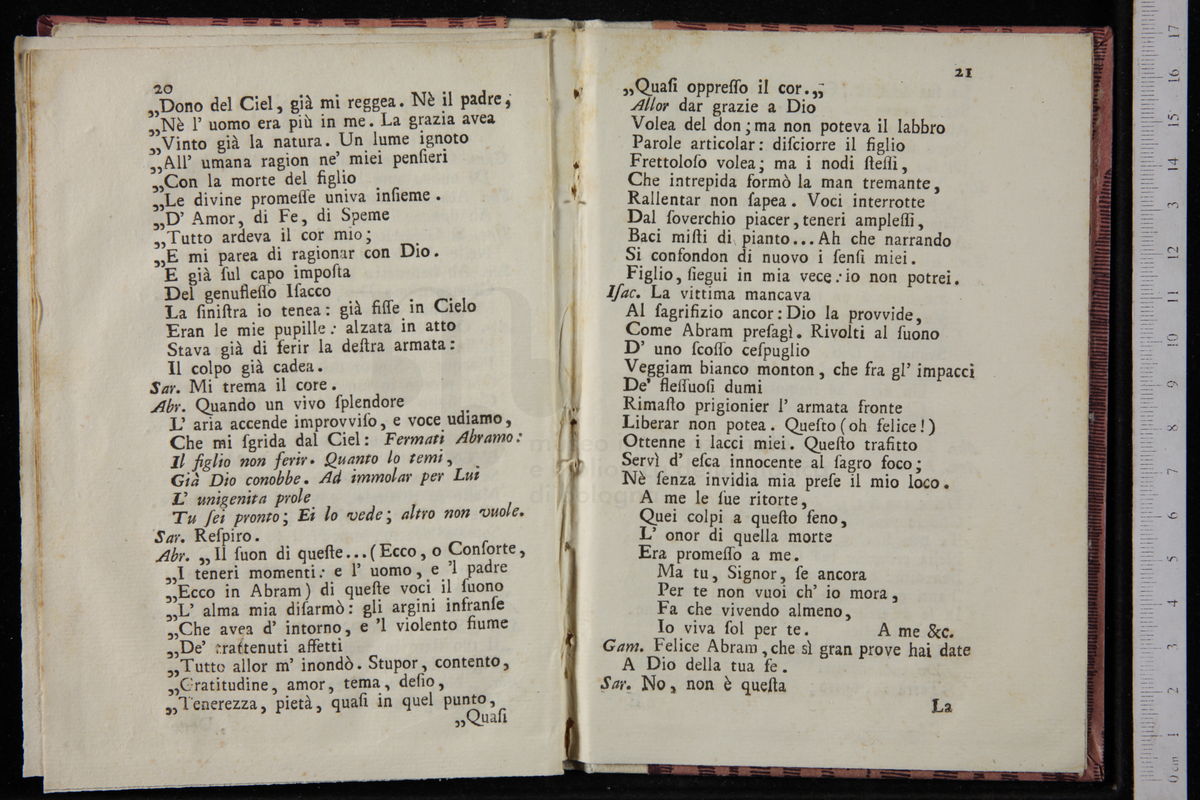 20
„Dono del Ciel, già mi reggea. Nè il padre,
„Nè l' uomo era più in me. La grazia avea
„Vinto già la natura. Un lume ignoto
„All' umana ragion ne' miei penſieri
„Con la morte del figlio
„Le divine promeſſe univa inſieme.
„D' Amor, di Fe, di Speme
„Tutto ardeva il cor mio;
„E mi parea di ragionar con Dio.
E già ſul capo impoſta
Del genufleſſo Iſacco
La ſiniſtra io tenea: già fiſſe in Cielo
Eran le mie pupille: alzata in atto
Stava già di ferir la deſtra armata:
Il colpo già cadea.
Sar. Mi trema il core.
Abr. Quando un vivo ſplendore
L' aria accende improvviſo, e voce udiamo,
Che mi ſgrida dal Ciel: Fermati Abramo:
Il figlio non ferir. Quanto lo temi,
Già Dio conobbe. Ad immolar per Lui
L' unigenita prole
Tu ſei pronto; Ei lo vede; altro non vuole.
Sar. Reſpiro.
Abr. „Il ſuon di queſte...(Ecco, o Conſorte,
„I teneri momenti: e l' uomo, e 'l padre
„Ecco in Abram) di queſte voci il ſuono
„L' alma mia diſarmò: gli argini infranſe
„Che avea d' intorno, e 'l violento fiume
„De' trattenuti affetti
„Tutto allor m' inondò. Stupor, contento,
„Gratitudine, amor, tema, deſio,
„Tenerezza, pietà, quaſi in quel punto,
„Quaſi
21
„Quaſi oppreſſo il cor.„
Allor dar grazie a Dio
Volea del don; ma non poteva il labbro
Parole articolar: diſciorre il figlio
Frettoloſo volea; ma i nodi ſteſſi,
Che intrepida formò la man tremante,
Rallentar non ſapea. Voci interrotte
Dal ſoverchio piacer, teneri ampleſſi,
Baci miſti di pianto... Ah che narrando
Si confondon di nuovo i ſenſi miei.
Figlio, ſiegui in mia vece: io non potrei.
Iſac. La vittima mancava
Al ſagrifizio ancor: Dio la provvide,
Come Abram preſagì. Rivolti al ſuono
D' uno ſcoſſo ceſpuglio
Veggiam bianco monton, che fra gl' impacci
De' fleſſuoſi dumi
Rimaſto prigionier l' armata fronte
Liberar non potea. Queſto (oh felice!)
Ottenne i lacci miei. Queſto trafitto
Servì d' eſca innocente al ſagro foco;
Nè ſenza invidia mia preſe il mio loco.
A me le ſue ritorte,
Quei colpi a queſto ſeno,
L' onor di quella morte
Era promeſſo a me.
Ma tu, Signor, ſe ancora
Per te non vuoi ch' io mora,
Fa che vivendo almeno,
Io viva ſol per te. A me &c.
Gam. Felice Abram, che sì gran prove hai date
A Dio della tua fe.
Sar. No, non è queſta
La
0 cm 1 2 3 4 5 6 7 8 9 10 11 12 13 14 15 16 17